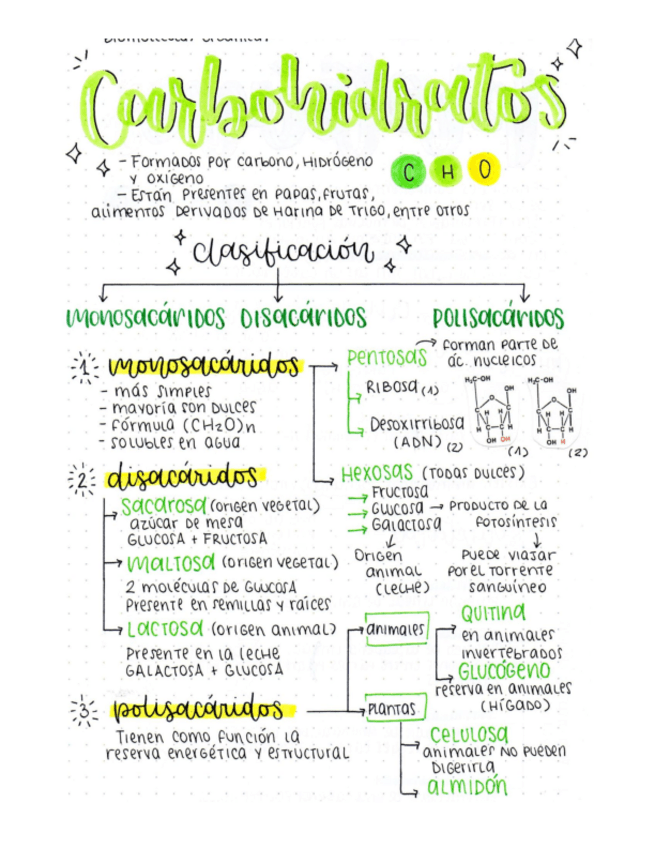 Biomolécula: orgánica.
Carbohidratos
- Formados por carbono, Hidrógeno
y oxígeno
C H O
- Están presentes en papas, frutas,
alimentos derivados de Harina de Trigo, entre otros
clasificación
monosacáridos Disacáridos Polisacáridos
1 monosacáridos
- más simples
- mayoría son dulces
- fórmula (CH2O)n
- solubles en agua
Pentosas → forman parte de
ác. nucleicos
Ribosa (1)
Desoxirribosa
(ADN) (2)
H2C-OH
OH
O
C C
H H
H H
C C
OH OH
(1)
H2C-OH
OH
O
C C
H H
H H
C C
OH H
(2)
Hexosas (Todas dulces)
Fructosa
Glucosa → Producto de la
fotosíntesis
Galactosa
Origen
animal
(leche)
Puede viajar
por el torrente
sanguíneo
2 disacáridos
Sacarosa (origen vegetal)
azúcar de mesa
Glucosa + Fructosa
Maltosa (origen vegetal)
2 moléculas de Glucosa
Presente en semillas y raíces
Lactosa (origen animal)
Presente en la leche
Galactosa + Glucosa
3 polisacáridos
Tienen como función la
reserva energética y estructural
animales
Quitina
en animales
invertebrados
Glucógeno
reserva en animales
(Hígado)
Plantas
Celulosa
animales no pueden
digerirla
almidón